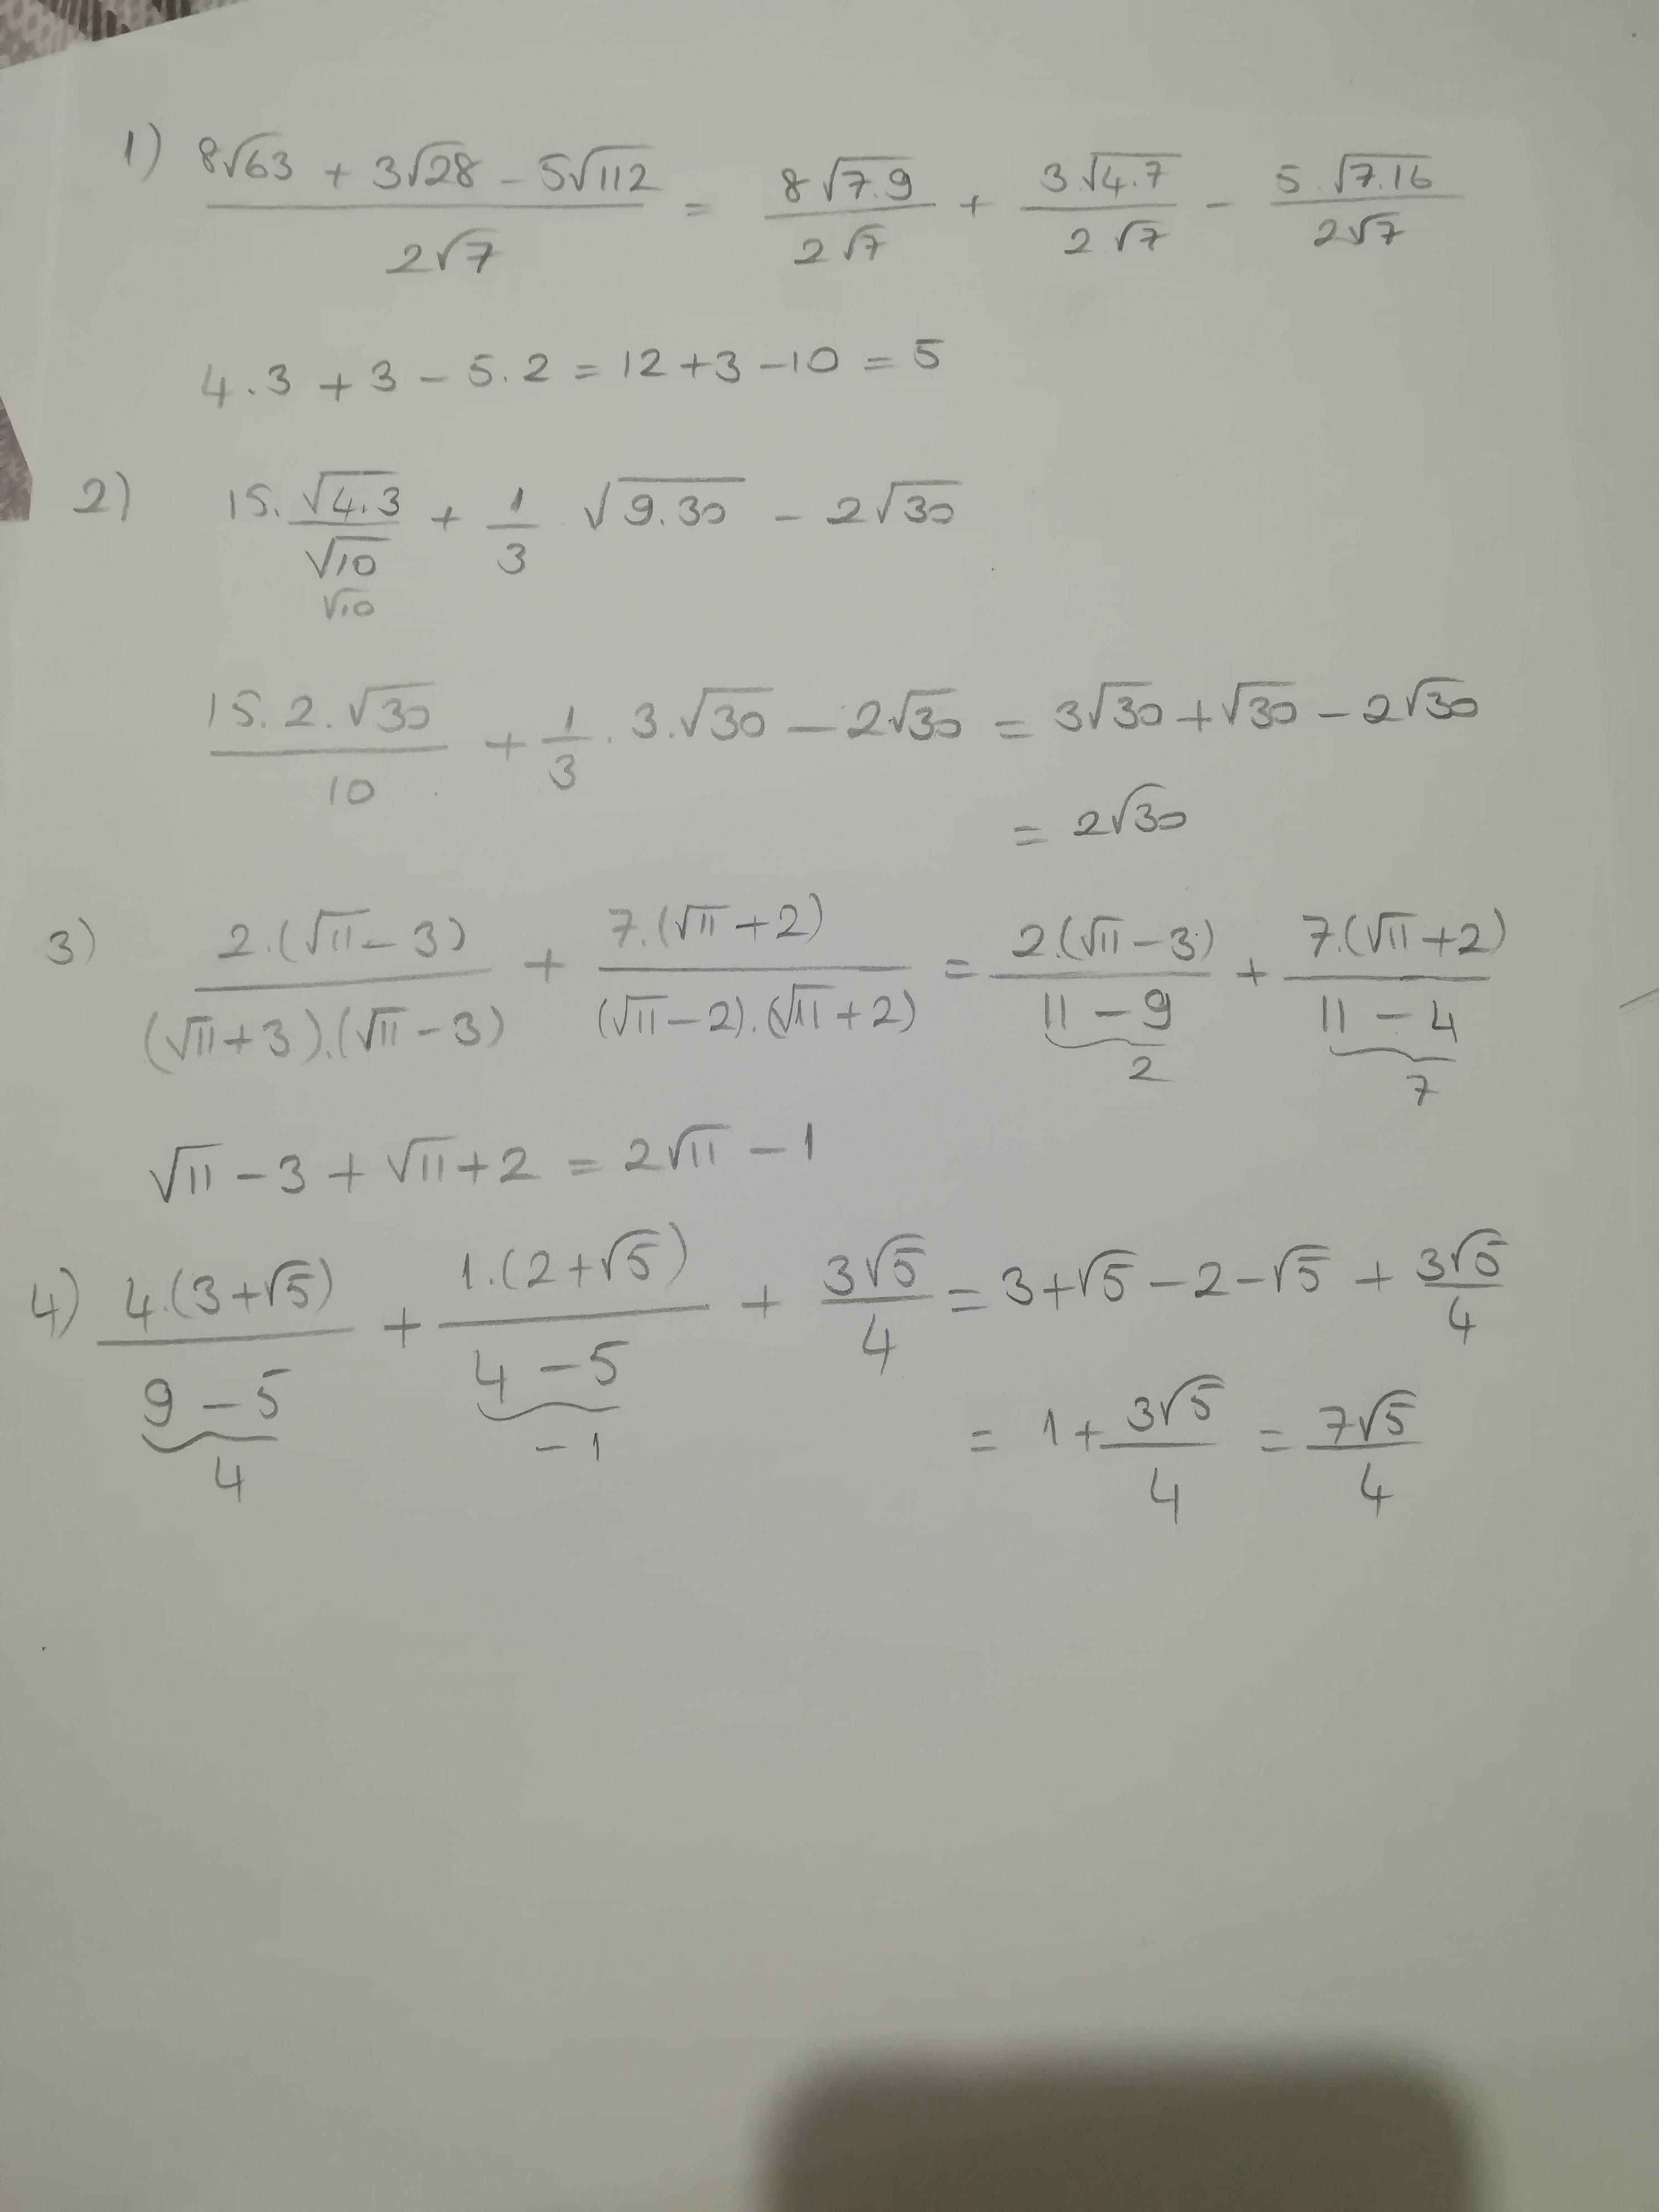 1) (8√63 + 3√28 - 5√112)/(2√7) = (8√7.9)/(2√7) + (3.√4.7)/(2.√7) - (5.√7.16)/(2√7)
4.3 + 3 - 5.2 = 12 + 3 - 10 = 5
2) 15.√4.3/√10 + 1/3 √9.30 - 2√30
√10
(15.2.√30)/10 + 1/3 . 3.√30 - 2√30 = 3√30 + √30 - 2√30
= 2√30
3) (2.(√11 - 3))/((√11 + 3).(√11 - 3)) + (7.(√11 + 2))/((√11 - 2).(√11 + 2)) = (2.(√11 - 3))/(11 - 9) + (7.(√11 + 2))/(11 - 4)
2 7
√11 - 3 + √11 + 2 = 2√11 - 1
4) (4.(3 + √5))/(9 - 5) + (1.(2 + √5))/(4 - 5) + (3√5)/4 = 3 + √5 - 2 - √5 + (3√5)/4
4 -1
= 1 + (3√5)/4 = (7√5)/4